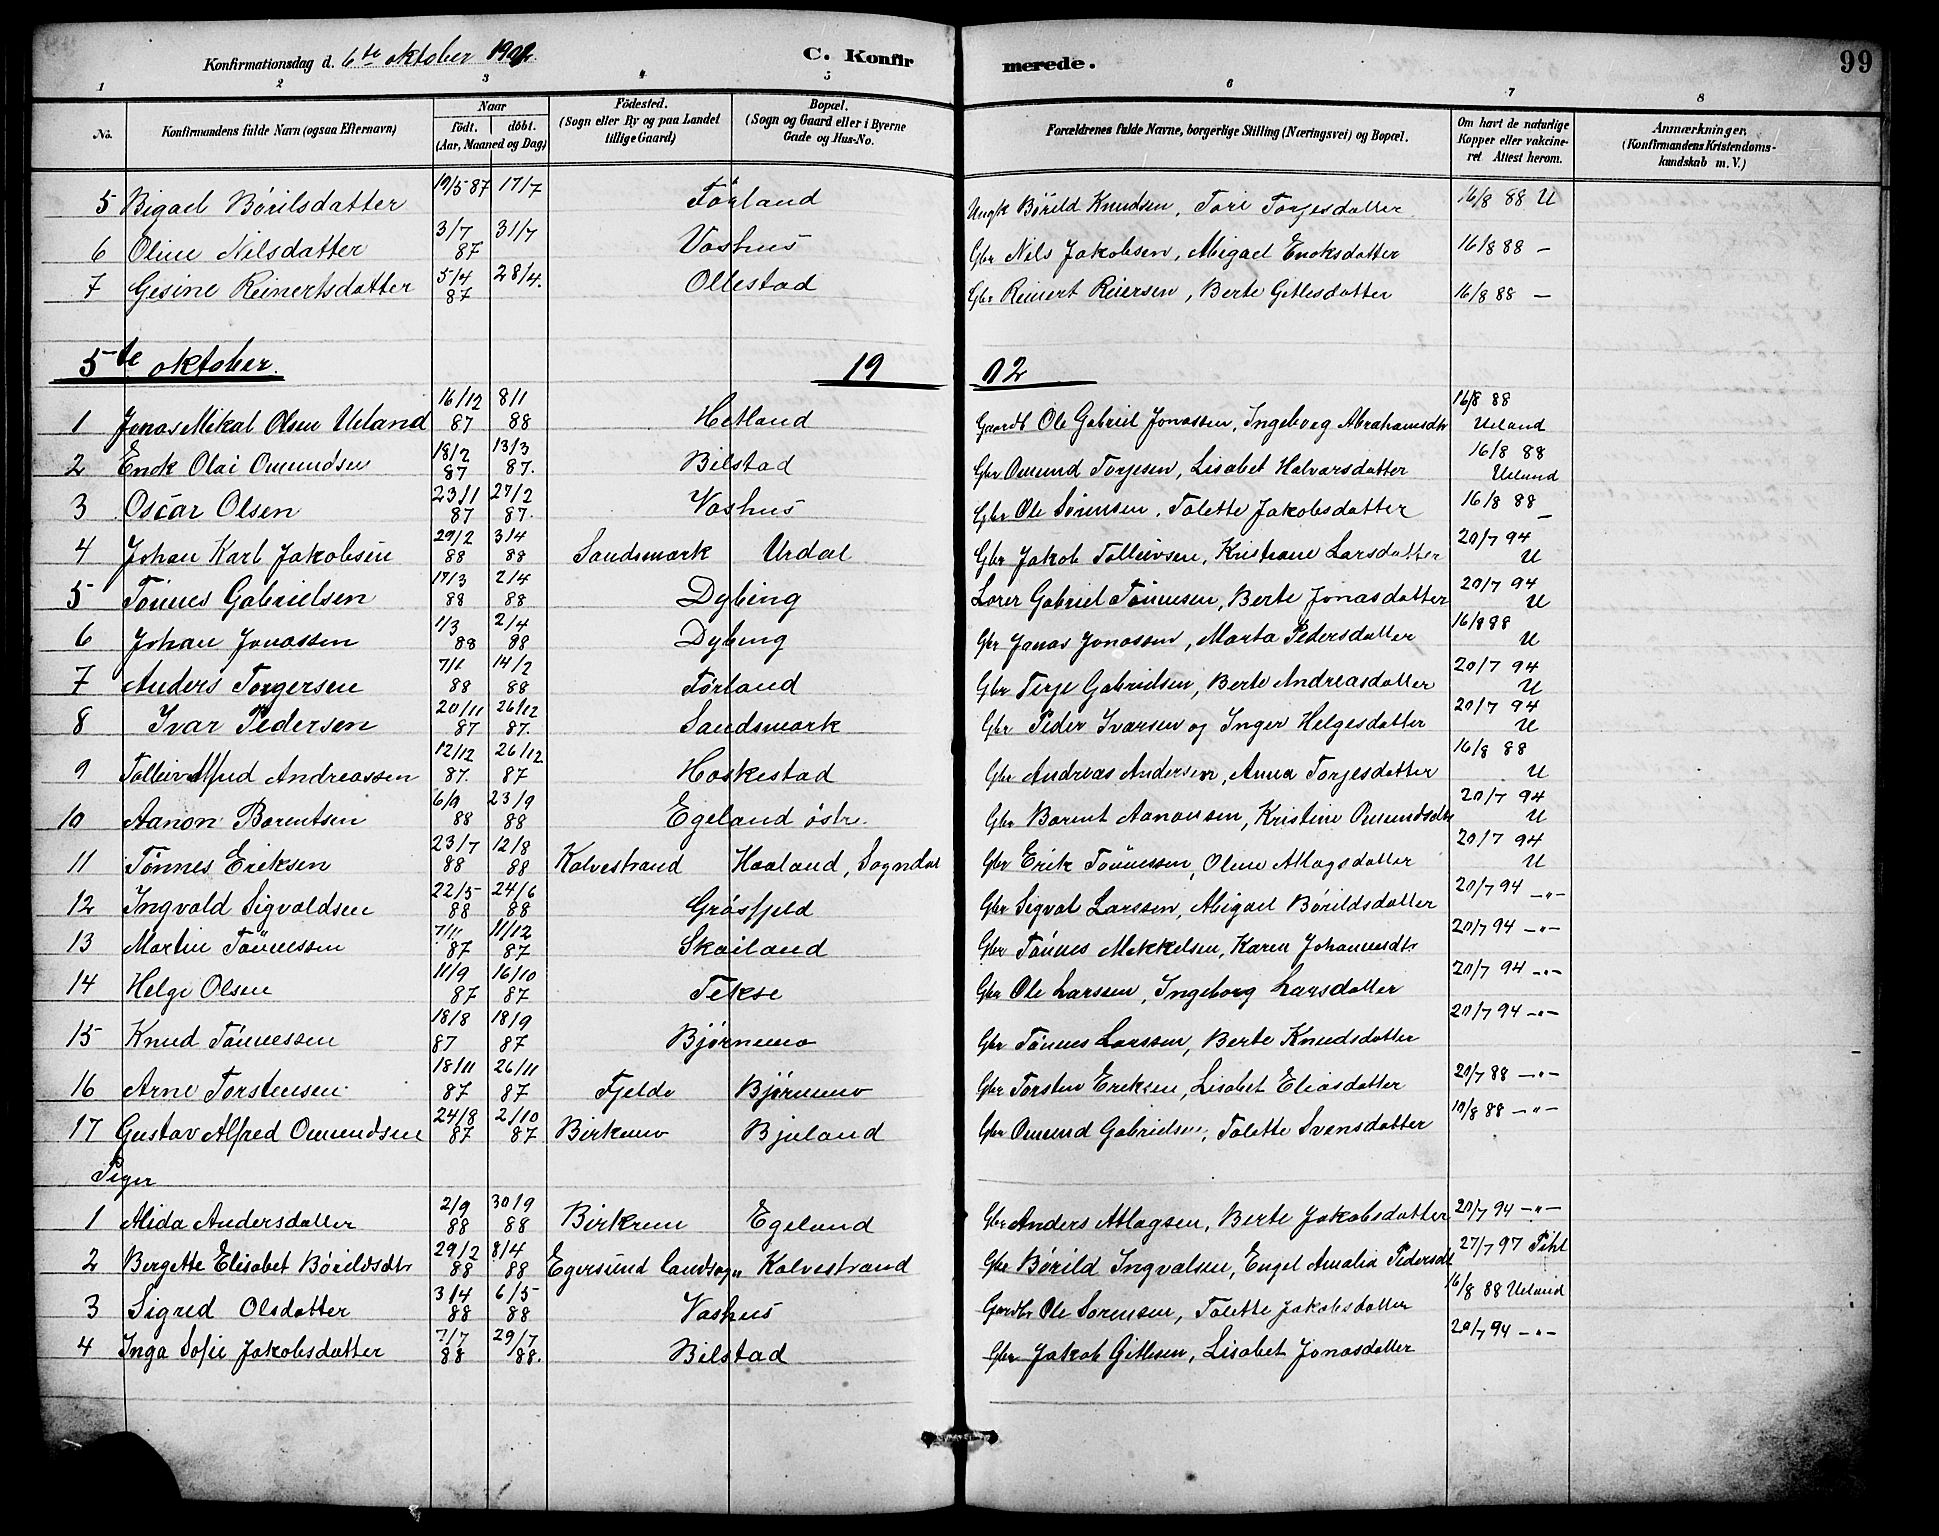 Konfirmationsdag d. 6te oktober 190
C. Konfir merede. 99
1 2 3 4 5 6 7 8
No. Konfirmandens fulde Navn (ogsaa Efternavn) Naar födt. döbt. (Aar, Maaned og Dag) Födested. (Sogn eller By og paa Landet tillige Gaard) Bopæl. (Sogn og Gaard eller i Byerne Gade og Hus-No. Forældrenes fulde Navne, borgerlige Stilling (Næringsvei) og Bopæl. Om havt de naturlige Kopper eller vakcineret Attest herom. Anmærkninger. (Konfirmandens Kristendomskundskab m. V.)
5 Bigael Børilsdatter 19/5 87 17/7 Förland Ungk Børild Knudsen, Tori Torjesdatter 16/8 88 U
6 Oline Nilsdatter 3/7 87 31/7 Vashus Gbr Nils Jakobsen, Abigael Enoksdatter 16/8 88 —
7 Gesine Reinertsdatter 5/4 87 28/4. Ollestad Gbr Reinert Reiersen, Berte Gitlesdatter 16/8 88 —
5te oktober 19 02
1 Jonas Mikal Olsen Ueland 16/12 87 8/1 88 Hetland Gaardb Ole Gabriel Jonassen, Ingeborg Abrahamsdtr 16/8 88 Ueland
2 Enok Olai Omundsen 18/2 87 13/3 87. Bilstad Gbr Omund Torjesen, Lisabet Halvarsdatter 16/8 88 Ueland
3 Oscar Olsen 23/1 87 27/2 87. Vashus Gbr Ole Sørensen, Talette Jakobsdatter 16/8 88 —
4 Johan Karl Jakobsen 29/2 88 3/4 88 Sandsmark Urdal Gbr Jakob Tolleivsen, Kristiane Larsdatter 20/7 94 U
5 Tönnes Gabrielsen 17/3 88 2/4 88 Dybing Lærer Gabriel Tönnesen, Berte Jonasdatter 20/7 94 U
6 Johan Jonassen 1/3 88 2/4 88 Dybing Gbr Jonas Jonassen, Marta Pedersdatter 16/8 88 U
7 Anders Torgersen 7/1 88 14/2 88 Førland Gbr Terje Gabrielsen, Berte Andreasdatter 20/7 94 U
8 Ivar Pedersen 20/11 87 26/12 87. Sandsmark Gbr Peder Ivarsen og Inger Helgesdatter 20/7 94 U
9 Tolleiv Alfred Andreassen 12/12 87. 26/12 87 Haskestad Gbr Andreas Andersen, Anna Torjesdatter 16/8 88 U
10 Aanon Barentsen 6/9 88 23/9 88 Egeland östre. Gbr Barent Aanonsen, Kristine Omundsdtr 20/7 94 U
11 Tønnes Eriksen 23/7 88 12/8 88 Kalvestrand Haaland, Sogndal Gbr Erik Tönnessen, Oline Atlagsdatter 20/7 94 U
12 Ingvald Sigvaldsen 22/5 88 24/6 88 Gråsfjeld Gbr Sigval Larssen, Abigael Børildsdatter 20/7 94 —"—
13 Martin Tönnessen 7/11 87 11/12 87 Skailand Gbr Tönnes Mikkelsen, Karen Johannesdtr 20/7 94 —"—
14 Helge Olsen 11/9 87 16/10 87 Tekse Gbr Ole Larssen, Ingeborg Larsdatter 20/7 94 —"—
15 Knud Tönnessen 18/8 87 18/9 87 Bjørnemo Gbr Tönnes Larssen, Berte Knudsdatter 20/7 94 —"—
16 Arne Torstensen 18/11 87 26/11 87 Fjelde Bjørnemo Gbr Torsten Eriksen, Lisabet Eliasdatter 20/7 88 —"—
17 Gustav Alfred Omundsen 24/8 87 2/10 87 Birkemo Bjuland Gbr Omund Gabrielsen, Talette Svensdatter 10/8 88 —"—
Piger
1 Alida Andersdatter 2/9 88 30/9 88 Birkrem Egeland Gbr Anders Atlagsen, Berte Jakobsdatter 20/7 94 —"—
2 Bergette Elisabet Børildsdtr 29/2 88 8/4 88 Egersund landsogn Kalvestrand Gbr Børild Ingvalsen, Engel Amalia Pedersdt 27/7 97 Pihl
3 Sigred Olsdatter 3/4 88 6/5 88 Vashus Gardbr Ole Sørensen, Talette Jakobsdatter 16/8 88 Ueland
4 Inga Sofie Jakobsdatter 7/7 88 29/7 88. Bilstad Gbr Jakob Gitlesen, Lisabet Jonasdatter 20/7 94 —"—